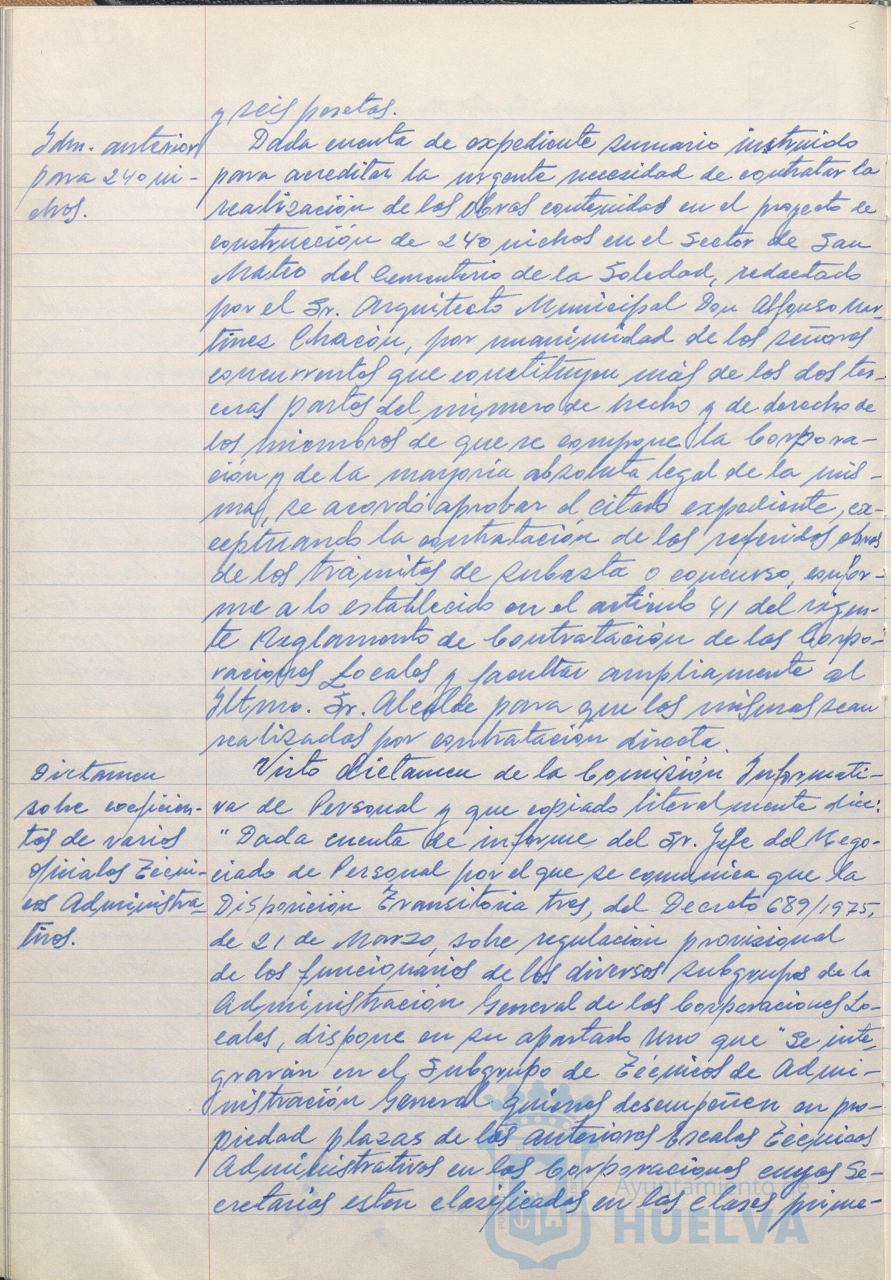 y seis pesetas.
Idm. anterior
para 240 ni-
chos.
Dada cuenta de expediente sumario instruido
para acreditar la urgente necesidad de contratar la
realización de las obras contenidas en el proyecto de
construcción de 240 nichos en el Sector de San
Mateo del Cementerio de la Soledad, redactado
por el Sr. Arquitecto Municipal Don Alfonso Mar-
tínez Chacón, por unanimidad de los señores
concurrentes que constituyen más de las dos ter-
ceras partes del número de hecho y de derecho de
los miembros de que se compone la Corpora-
ción y de la mayoría absoluta legal de la mis-
ma, se acordó aprobar el citado expediente, ex-
ceptuando la contratación de las referidas obras
de los trámites de subasta o concurso, confor-
me a lo establecido en el artículo 41 del vigen-
te Reglamento de Contratación de las Corpo-
raciones Locales y facultar ampliamente al
Iltmo. Sr. Alcalde para que las mismas sean
realizadas por contratación directa.
Dictamen
sobre coeficien-
tes de varios
oficiales Técni-
cos Administra-
tivos.
Visto dictamen de la Comisión Informati-
va de Personal y que copiado literalmente dice:
"Dada cuenta de informe del Sr. Jefe del Nego-
ciado de Personal por el que se comunica que la
Disposición Transitoria tres, del Decreto 689/1975,
de 21 de Marzo, sobre regulación provisional
de los funcionarios de los diversos subgrupos de la
Administración General de las Corporaciones Lo-
cales, dispone en su apartado Uno que "Se inte-
grarán en el Subgrupo de Técnicos de Admi-
nistración General quienes desempeñen en pro-
piedad plazas de las anteriores Escalas Técnicas
Administrativas en las Corporaciones cuyas Se-
cretarías estén clasificadas en las clases prime-
Ayuntamiento de
HUELVA